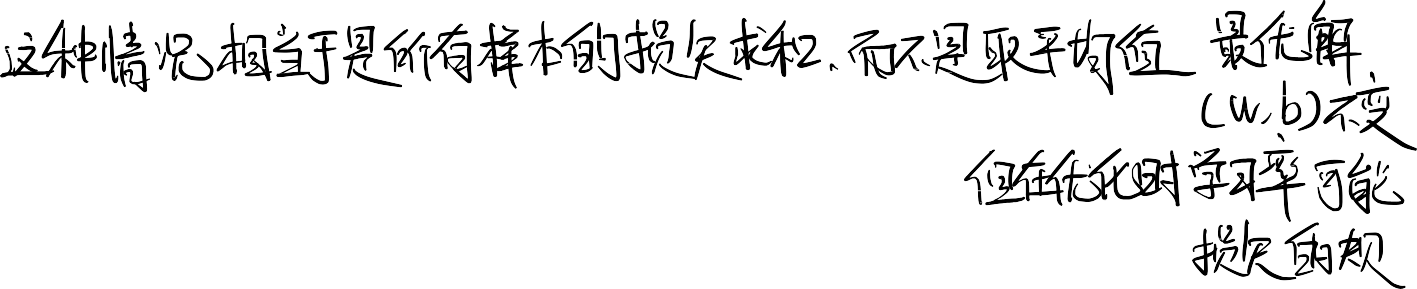 这种情况相当于是所有样本的损失求和、而不是取平均值 最优解
(w,b)不变
但在优化时学习率可能
损失的规